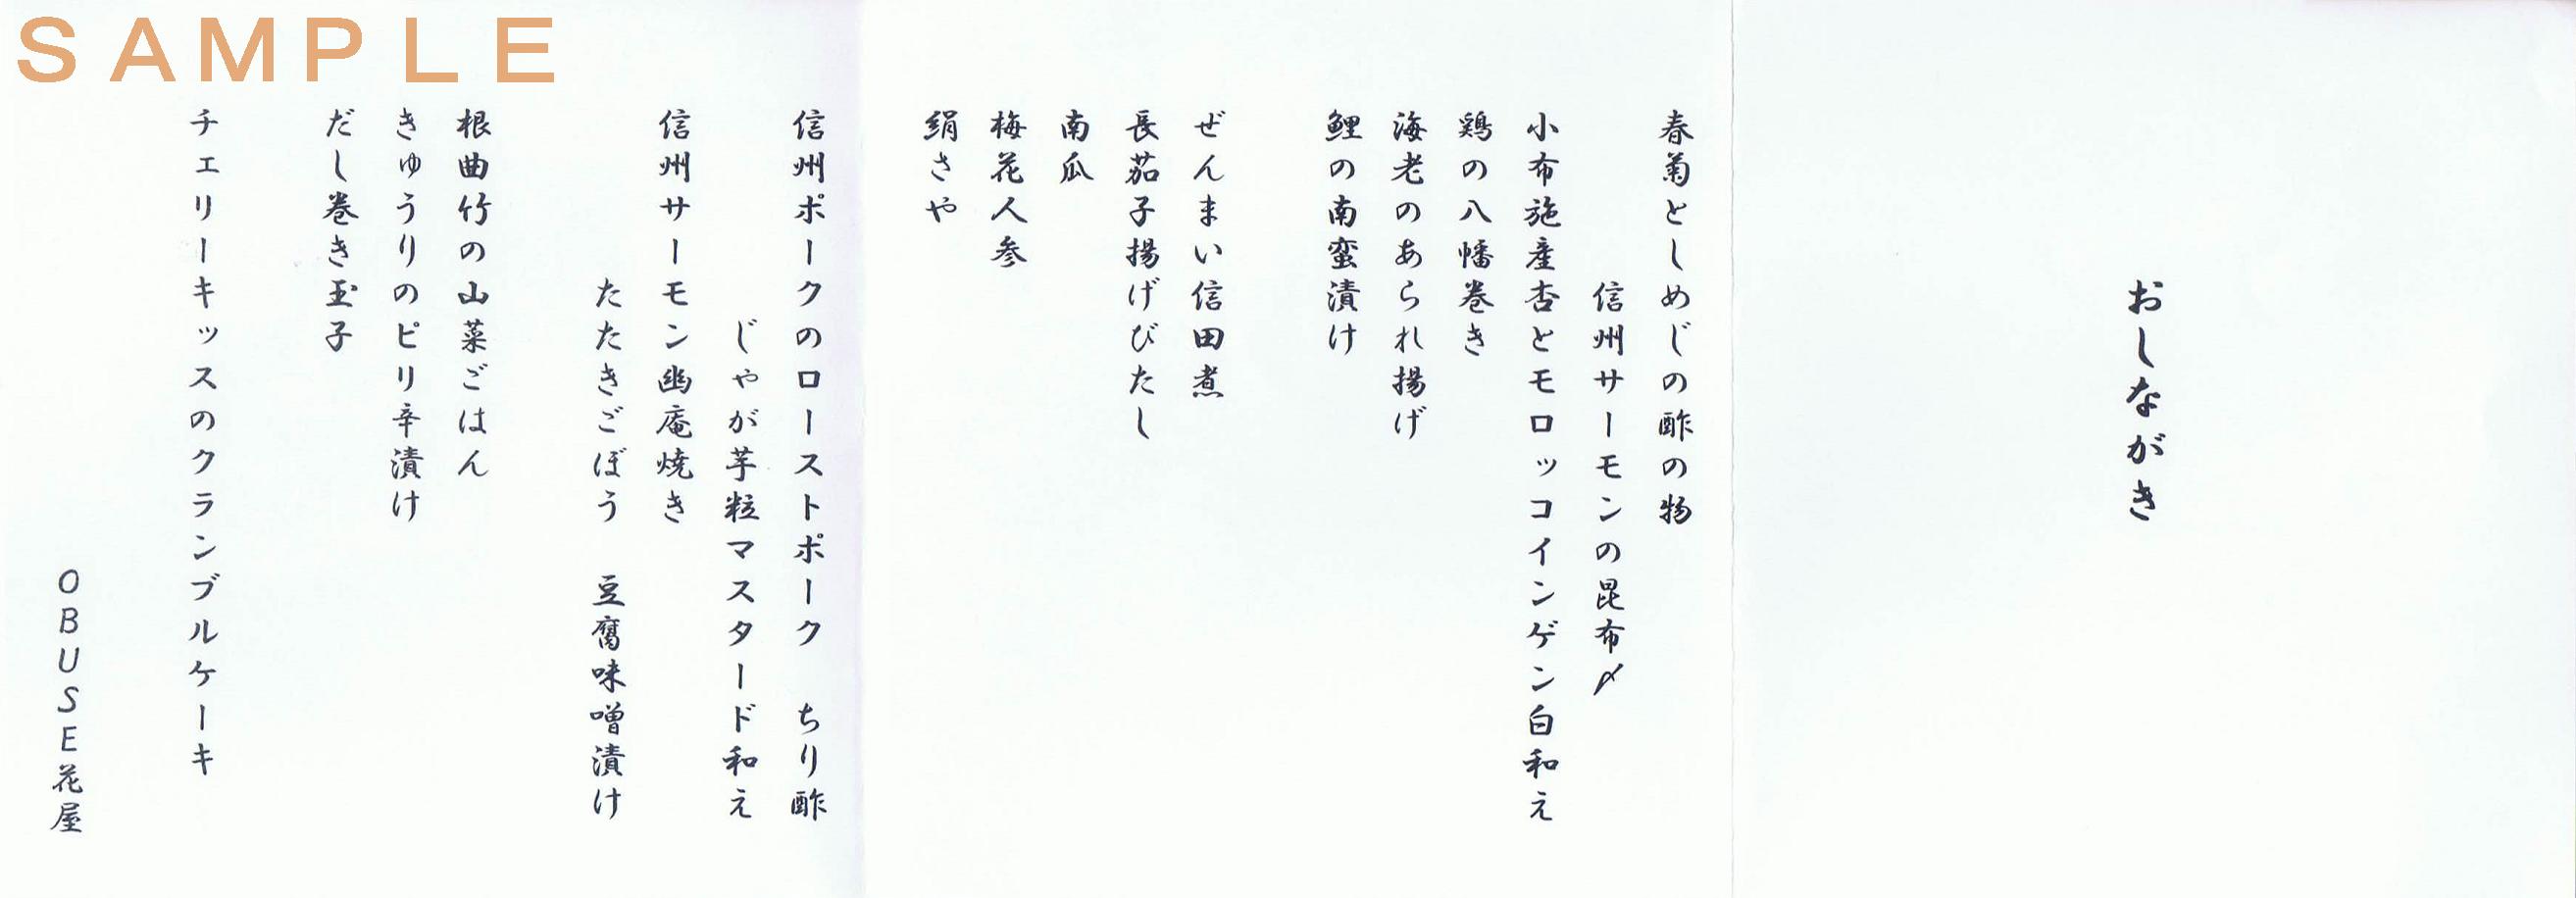 SAMPLE
おしながき
春菊としめじの酢の物
信州サーモンの昆布〆
小布施産杏とモロッコインゲン白和え
鶏の八幡巻き
海老のあられ揚げ
鯉の南蛮漬け
ぜんまい信田煮
長茄子揚げびたし
南瓜
梅花人参
絹さや
信州ポークのローストポーク　ちり酢
じゃが芋粒マスタード和え
信州サーモン幽庵焼き
たたきごぼう　豆腐味噌漬け
根曲竹の山菜ごはん
きゅうりのピリ辛漬け
だし巻き玉子
チェリーキッスのクランブルケーキ
OBUSE花屋